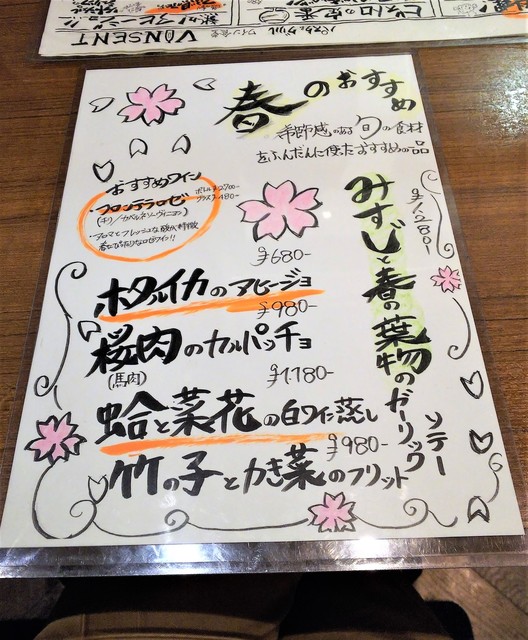 VINSENT
ワイン食堂
春のおすすめ
季節感のある旬の食材
をふんだんに使ったおすすめの品
おすすめワイン
・フロンテラロゼ
ボトル¥2,700-
グラス¥480-
(チリ/カベルネソーヴィニヨン)
みすじと春の葉物のガーリックソテー
¥1,280-
¥680-
ホタルイカのアヒージョ
¥980-
桜肉のカルパッチョ
(馬肉)
¥1,180-
蛤と菜花の白ワイン蒸し
¥980-
竹の子とかき菜のフリット